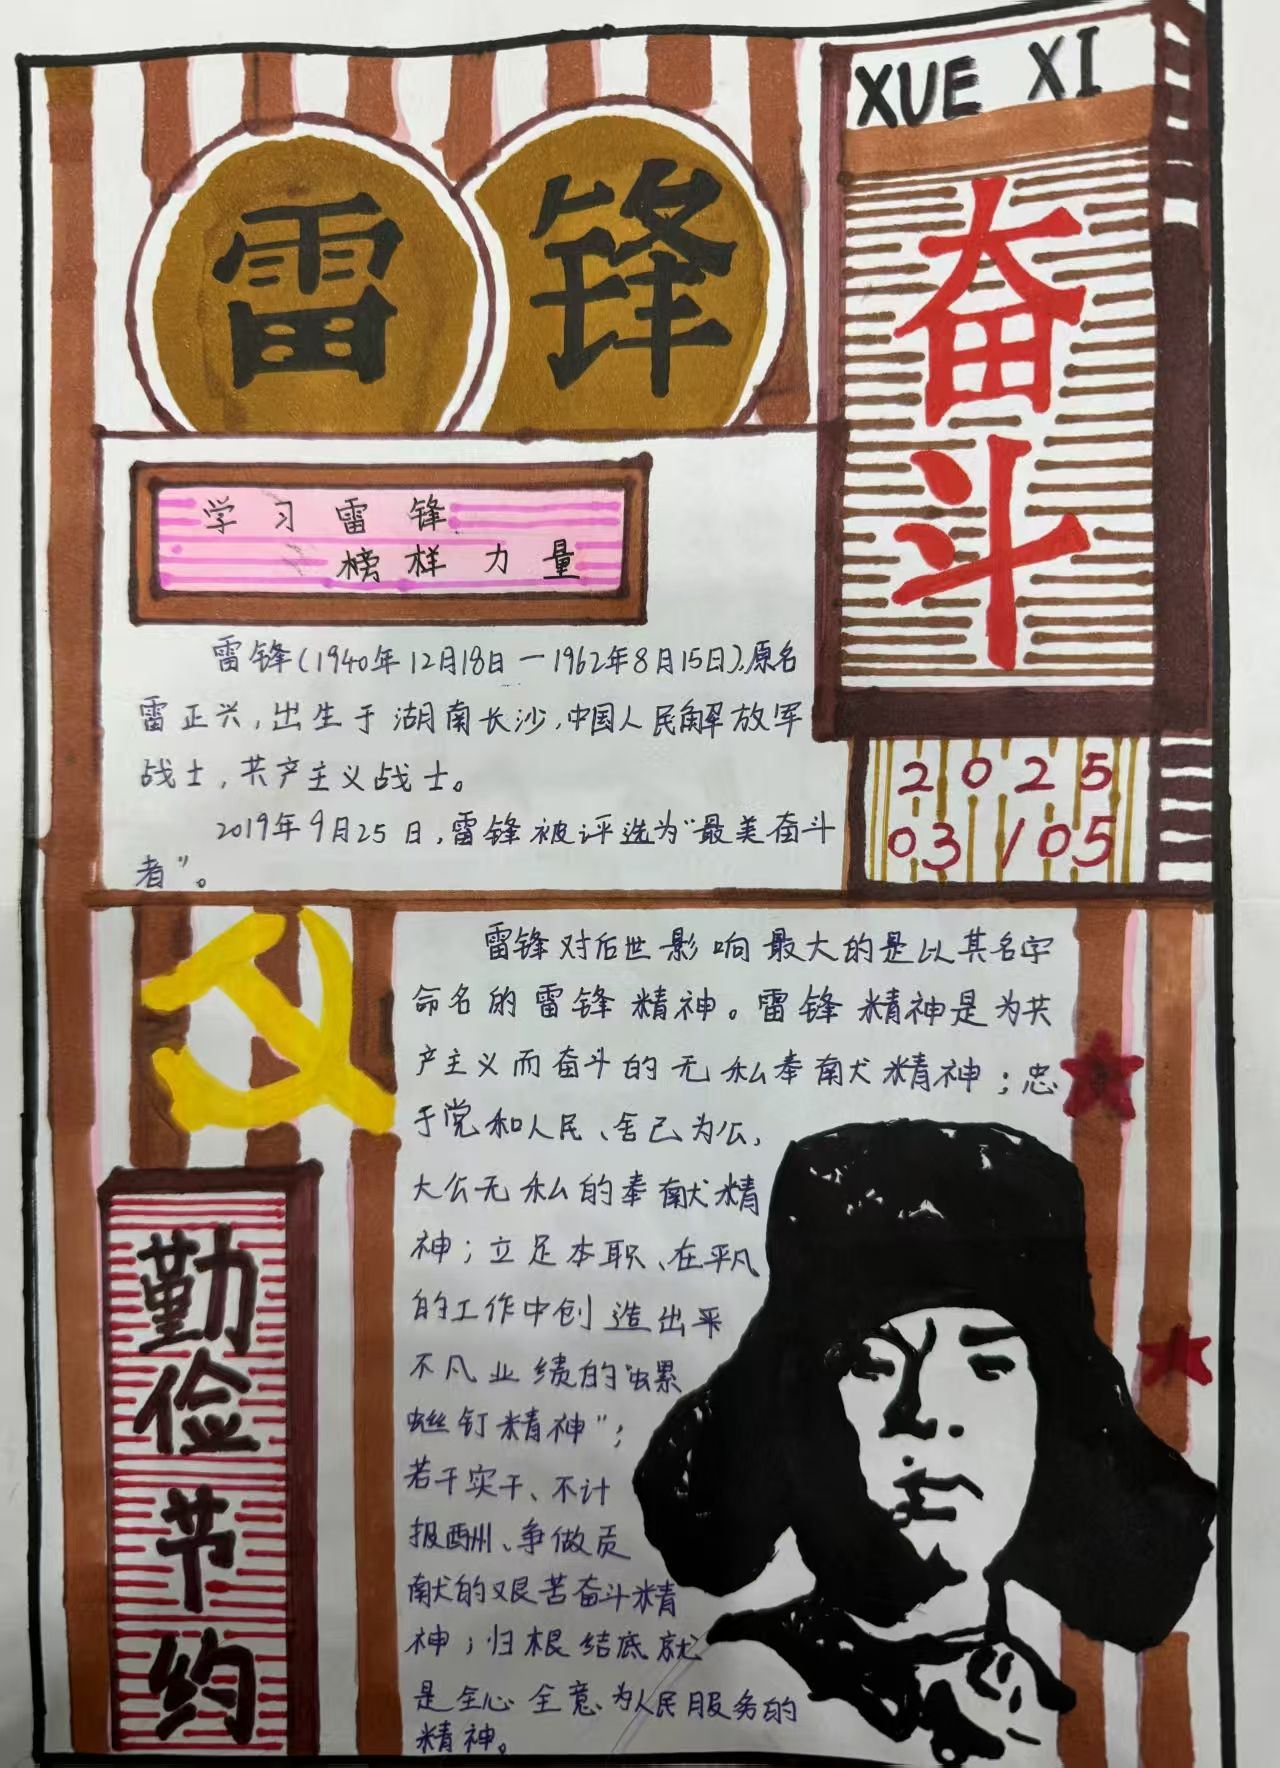 雷锋
XUE XI
奋斗
学习雷锋
榜样力量
雷锋(1940年12月18日—1962年8月15日),原名
雷正兴,出生于湖南长沙,中国人民解放军
战士,共产主义战士。
2019年9月25日,雷锋被评选为“最美奋斗
者”。
2025
03/05
雷锋对后世影响最大的是以其名字
命名的雷锋精神。雷锋精神是为共
产主义而奋斗的无私奉献精神;忠
于党和人民、舍己为公,
大公无私的奉献精
神;立足本职、在平凡
的工作中创造出平
不凡业绩的“螺
丝钉精神”;
若干实干、不计
报酬、争做贡
献的艰苦奋斗精
神;归根结底就
是全心全意为人民服务的
精神。
勤俭节约